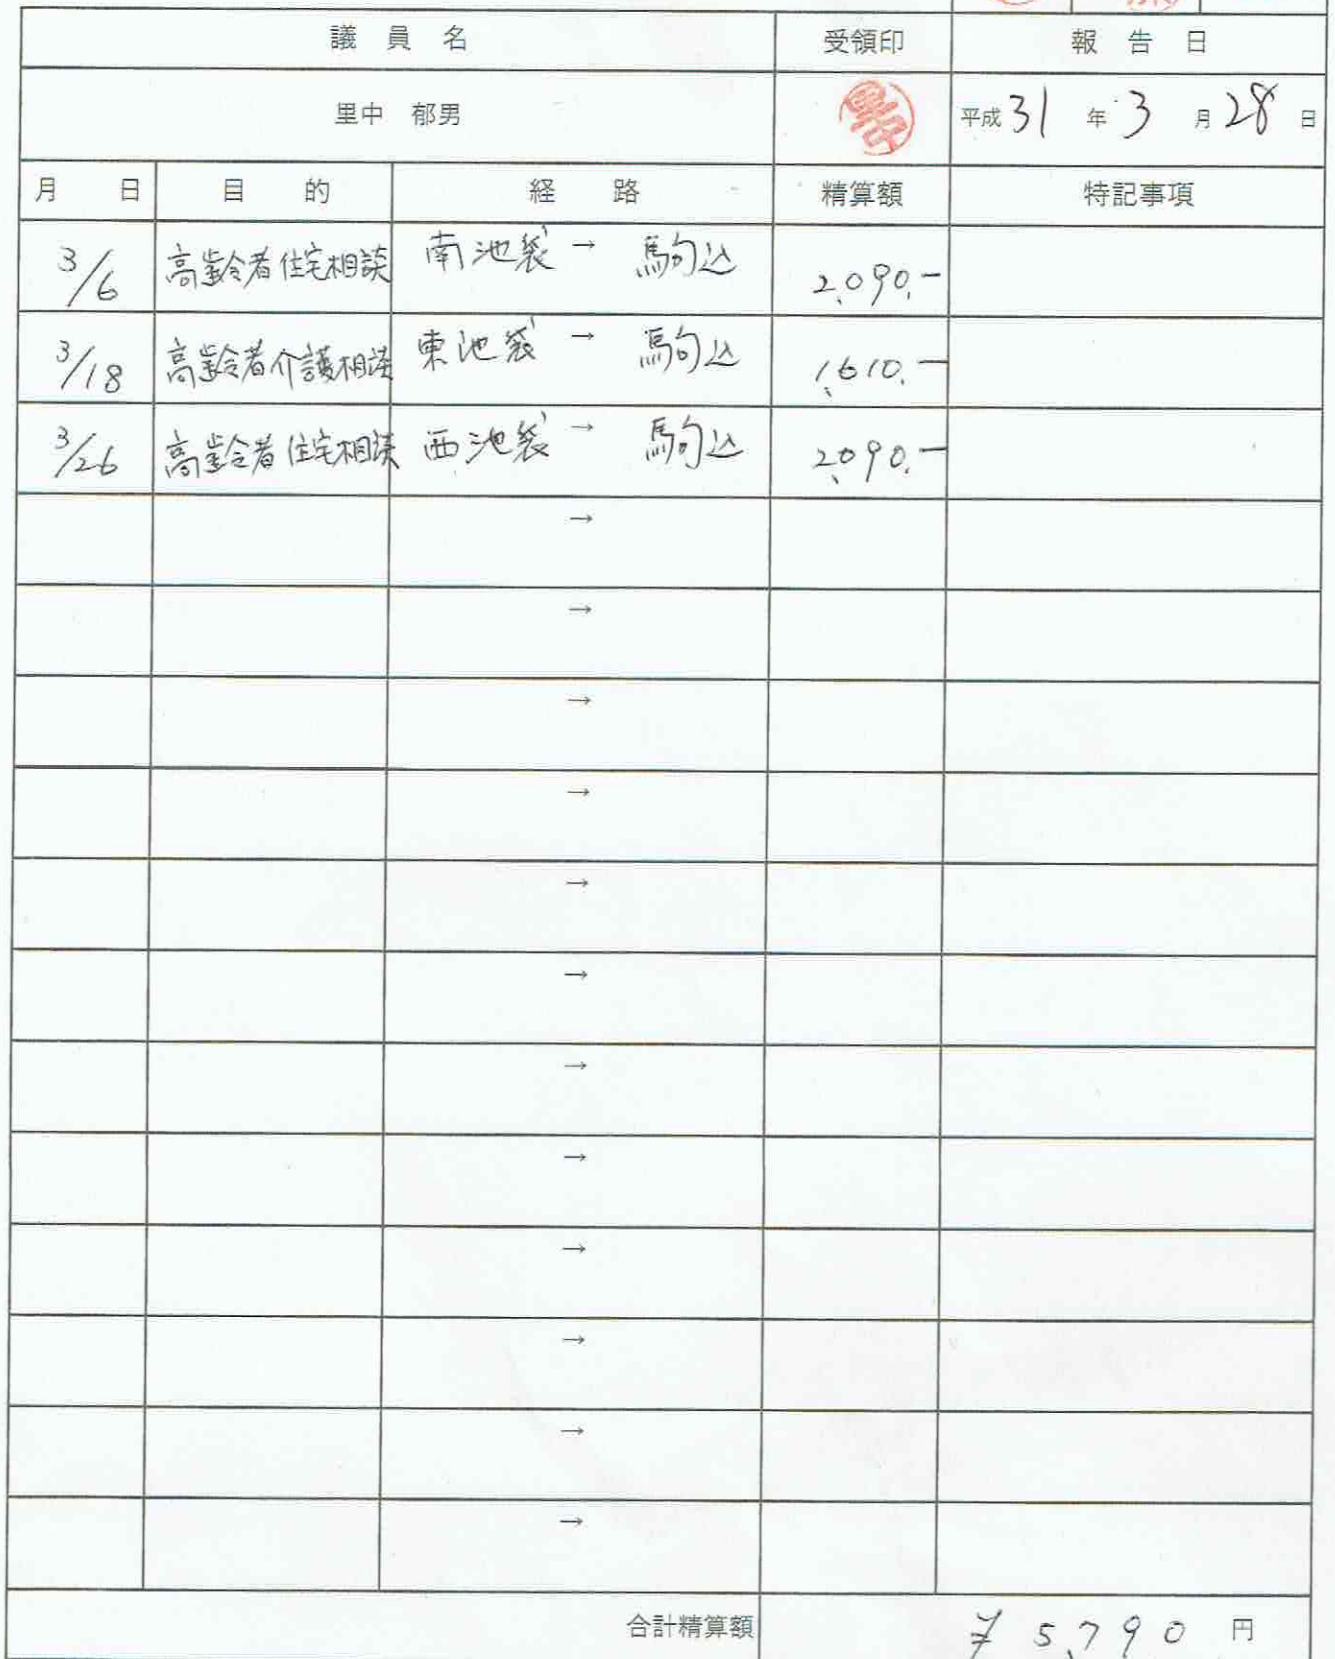 議員名 受領印 報告日
里中 郁男 里中 平成31年3月28日
月日 目的 経路 精算額 特記事項
3/6 高齢者住宅相談 南池袋 → 駒込 2,090.-
3/18 高齢者介護相談 東池袋 → 駒込 1,610.-
3/26 高齢者住宅相談 西池袋 → 駒込 2,090.-
→
→
→
→
→
→
→
→
→
→
→
→
合計精算額 ¥5,790円